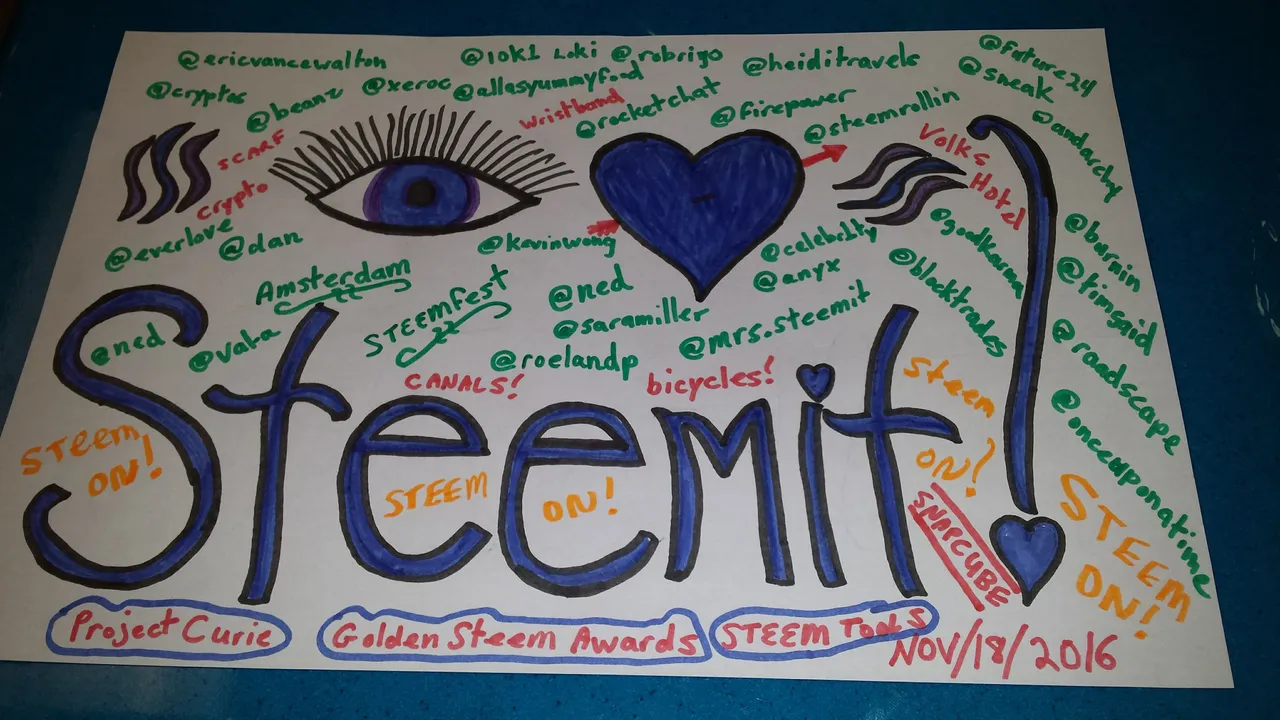 @ericvancewalton
@lok1 Loki
@robrigo
@heiditravels
@future24
@cryptos
@beanz
@xeroc
@allasyummyfood
@sneak
wristband
@rocketchat
@firepower
@steemrollin
@andarchy
SCARF
crypto
Volks
Hotel
@everlove
@dan
@kevinwong
@celebr1ty
@goodkarma
@burnin
Amsterdam
STEEMFEST
@ned
@anyx
@blocktrades
@timsaid
@ned
@vata
@saramiller
@mrs.steemit
@roadscape
@roelandp
CANALS!
bicycles!
@onceuponatime
Steemit!
STEEM
ON!
STEEM
ON!
Steem
ON!
STEEM
ON!
SNARCUBE
Project Curie
Golden Steem Awards
STEEM Tools
NOV/18/2016